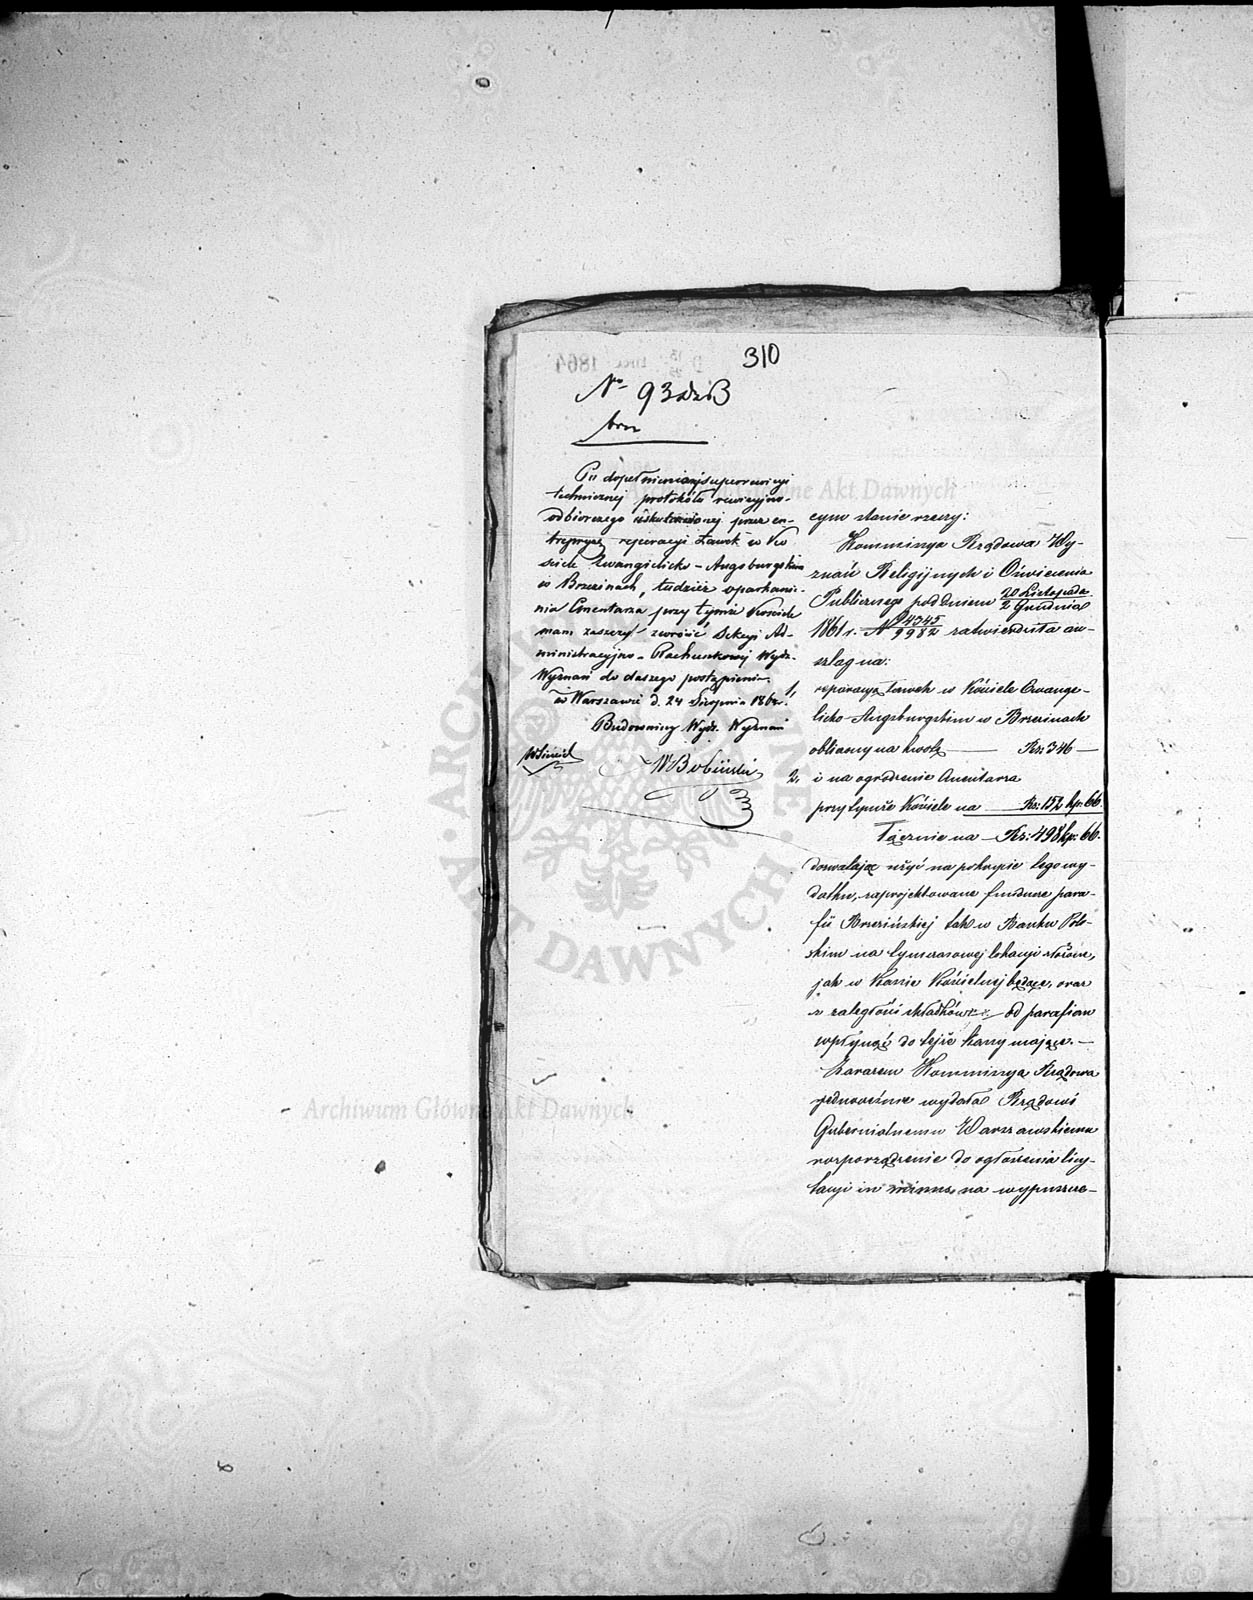 310
No 93
Po dopełnieniu superrewizyi
technicznej protokółu rewizyjno-
odbiorczego uskutecznionej przez en-
trepryzę reperacyi Ławek w Ko
ściele Ewangelicko-Augsburgskim
w Brzezinach, tudzież oparkanie-
nia Cmentarza przy tymże Kościele
mam zaszczyt zwrócić Sekcyi Ad-
ministracyjno-Rachunkowej Wydz.
Wyznań do dalszego postąpienia.
w Warszawie d. 24 Sierpnia 1864 r.
Budowniczy Wydz. Wyznań
cym stanie rzeczy:
Kommissya Rządowa Wy-
znań Religijnych i Oświecenia
Publicznego pod dniem 20 Listopada / 2 Grudnia
1861 r. N 24345 / 9982 zatwierdziła an-
szlag na:
1, reperacyą ławek w Kościele Ewange-
licko-Augsburgskim w Brzezinach
obliczony na kwotę — Rs: 346 —
2. i na ogrodzenie Cmentarza
przy tymże Kościele na — Rs: 152 kp. 66.
Łącznie na — Rs: 498 kp. 66.
dozwalając użyć na pokrycie tego wy-
datku, zaprojektowane fundusze para-
fii Brzezińskiej tak w Banku Pol-
skim na tymczasowej lokacyi złożone,
jak w Kassie Kościelnej będące, oraz
z zaległości składkowych od parafian
wpłynąć do tejże Kassy mające. —
Zarazem Kommissya Rządowa
jednocześnie wydała Rządowi
Gubernialnemu Warszawskiemu
rozporządzenie do ogłoszenia licy-
tacyi in minus na wypuszcze-
Archiwum Główne Akt Dawnych
Archiwum Główne Akt Dawnych